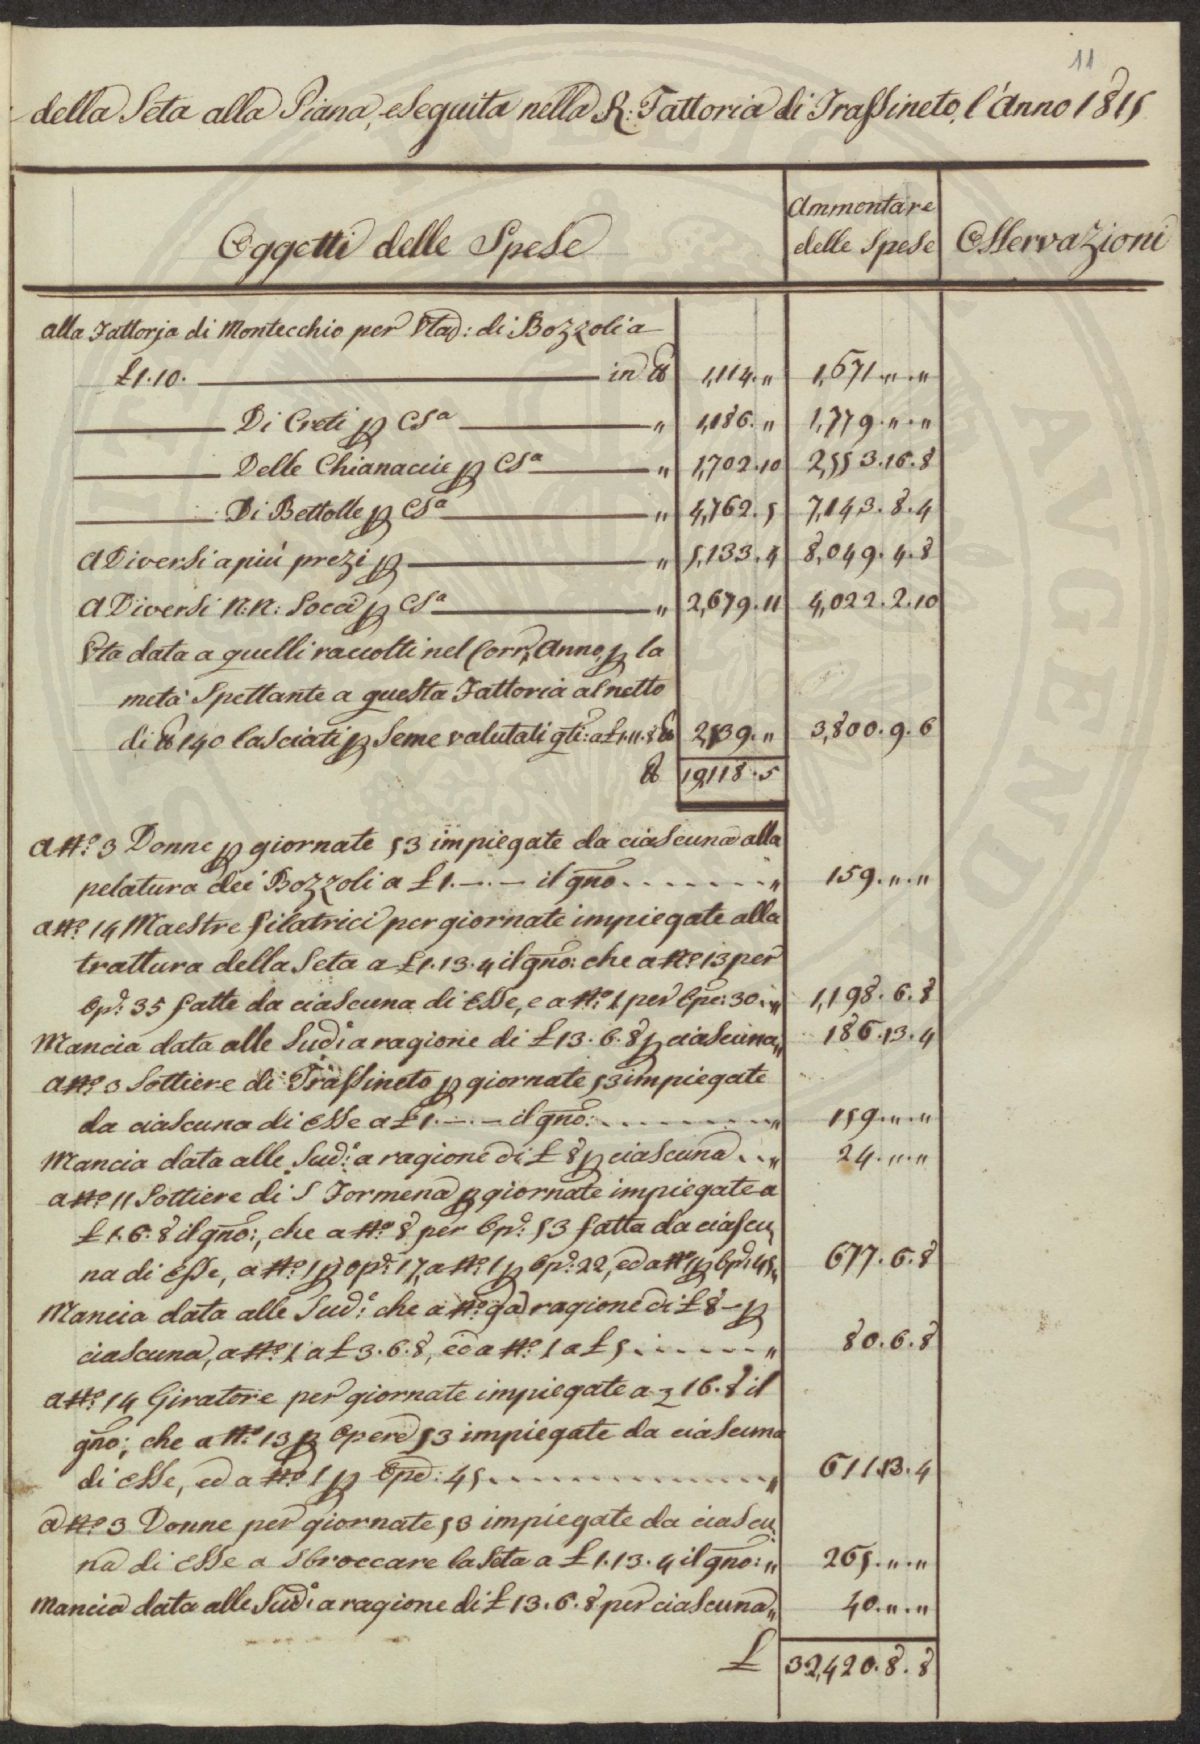 11
della Seta alla Piana, eseguita nella R: Fattoria di Frassineto, l'Anno 1815
Oggetti delle Spese
Ammontare delle Spese
Osservazioni
alla Fattoria di Montecchio per Vta: di Bozzoli a
£1.10. in ℔ 1,114.„ 1,671.„.„
Di Creti p Csa „ 1,186.„ 1,779.„.„
Delle Chianaccie p Csa „ 1,702.10 2,553.16.8
Di Bettolle p Csa „ 4,762.5 7,143.8.4
A Diversi a più prezi p „ 5,133.4 8,049.4.8
A Diversi N.N: Socci p Csa „ 2,679.11 4,022.2.10
Vta data a quelli raccolti nel Corre Anno, p la
metà Spettante a questa Fattoria al netto
di ℔ 140 lasciati p Seme valutati gti: a £1.11.8 ℔ 2,539.„ 3,800.9.6
℔ 19,118.5
A No. 3 Donne p giornate 53 impiegate da ciascuna alla
pelatura dei Bozzoli a £1.—.— il gno „ 159.„.„
a No. 14 Maestre filatrici per giornate impiegate alla
trattura della Seta a £1.13.4 il gno: che a No. 13 per
Opre. 35 fatte da ciascuna di esse, e a No. 1 per Opre: 30 „ 1,198.6.8
Mancia data alle Sude. a ragione di £13.6.8 p ciascuna „ 186.13.4
a No. 3 Sottiere di Frassineto p giornate 53 impiegate
da ciascuna di esse a £1.—.— il gno: „ 159.„.„
Mancia data alle Sude. a ragione di £8 p ciascuna „ 24.„.„
a No. 11 Sottiere di S Formena p giornate impiegate a
£1.6.8 il gno:, che a No. 8 per Opre. 53 fatta da ciascu,
na di esse, a No. 1 p opre 17, a No. 1 p Opre: 22, ed a No. 1 p Opre: 45 „ 677.6.8
Mancia data alle Sude: che a No. 9 a ragione di £8— p
ciascuna, a No. 1 a £3.6.8, ed a No. 1 a £5 „ 80.6.8
a No. 14 Giratore per giornate impiegate a 16.8 il
gno:, che a No. 13 p Opere 53 impiegate da ciascuna
di esse, ed a No. 1 p Opre: 45 „ 611.13.4
a No. 3 Donne per giornate 53 impiegate da ciascu,
na di esse a sbroccare la Seta a £1.13.4 il gno: „ 265.„.„
Mancia data alle Sude. a ragione di £13.6.8 per ciascuna „ 40.„.„
£ 32,420.8.8